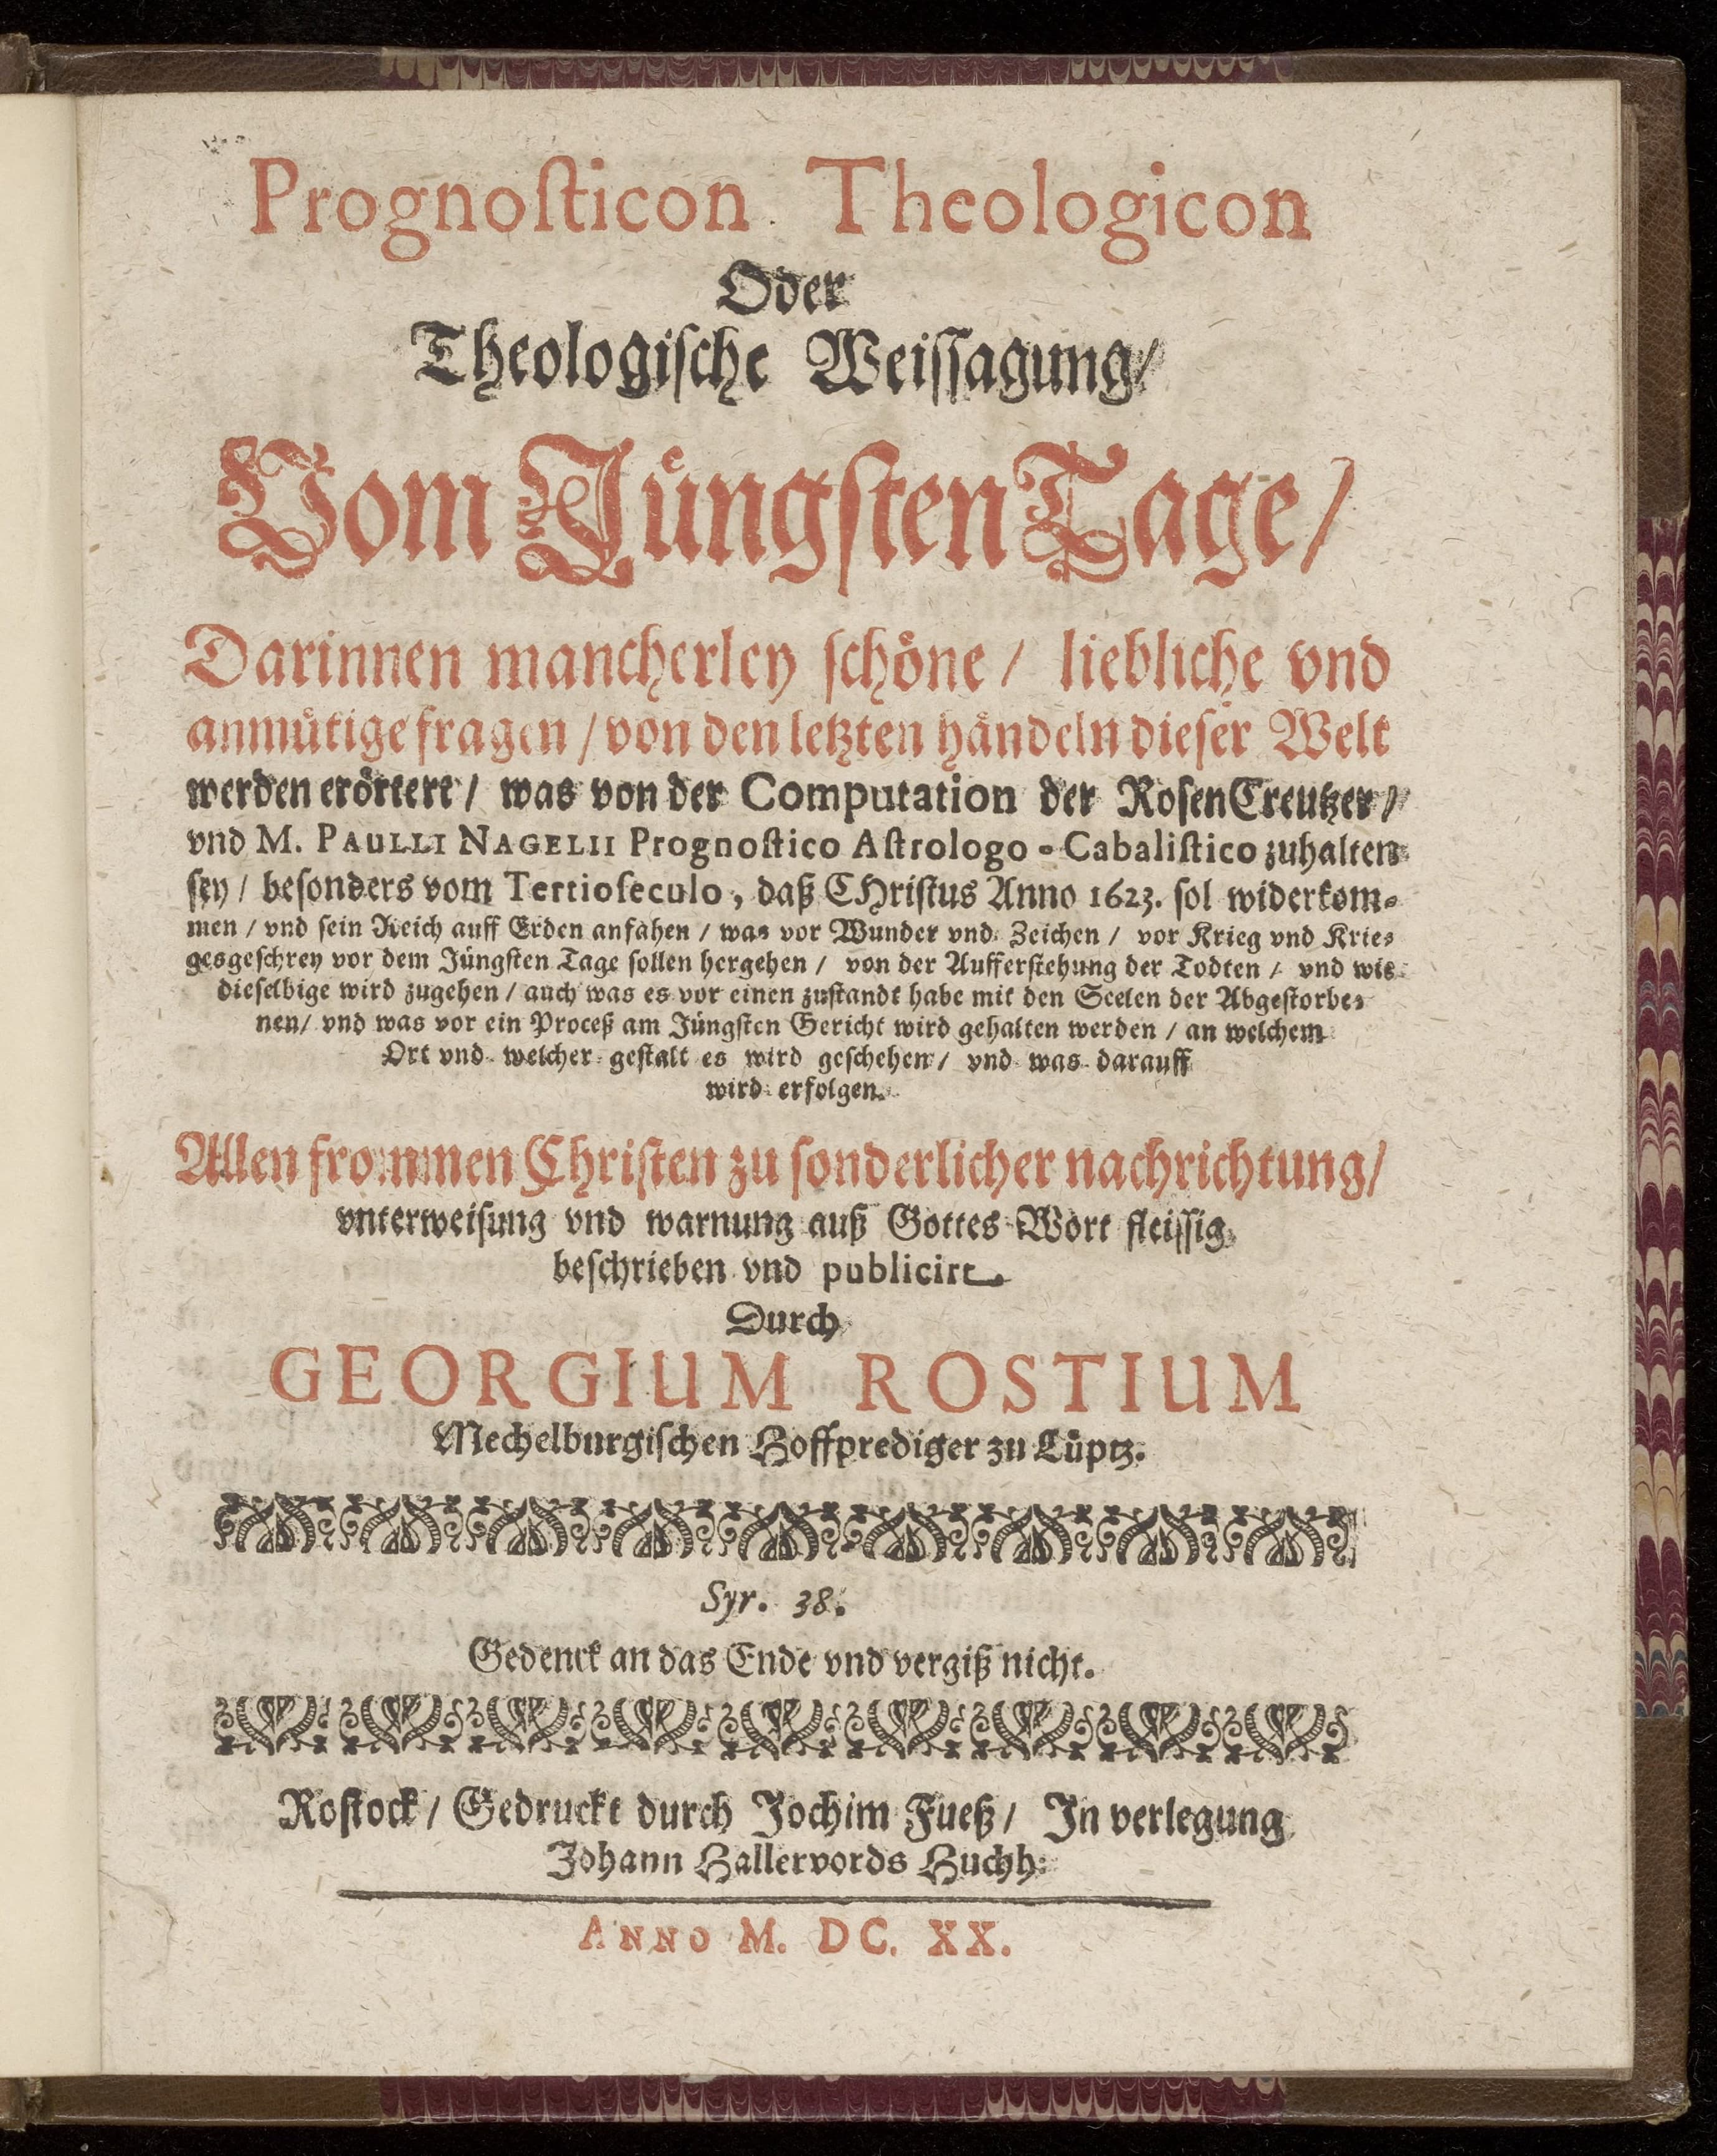 Prognoſticon Theologicon
Oder
Theologiſche Weiſſagung/
Vom Jüngſten Tage/
Darinnen mancherley ſchöne / liebliche vnd
anmütige fragen / von den letzten händeln dieſer Welt
werden erörtert / was von der Computation der RoſenCreutzer /
vnd M. PAULLI NAGELII Prognoſtico Aſtrologo-Cabaliſtico zuhalten
ſey / beſonders vom Tertioſeculo, daß CHriſtus Anno 1623. ſol widerkom-
men / vnd ſein Reich auff Erden anfahen / was vor Wunder vnd Zeichen / vor Krieg vnd Krie-
gesgeſchrey vor dem Jüngſten Tage ſollen hergehen / von der Aufferſtehung der Todten / vnd wie
dieſelbige wird zugehen / auch was es vor einen zuſtandt habe mit den Seelen der Abgeſtorbe-
nen/ vnd was vor ein Proceß am Jüngſten Gericht wird gehalten werden / an welchem
Ort vnd welcher geſtalt es wird geſchehen / vnd was darauff
wird erfolgen.
Allen frommen Chriſten zu ſonderlicher nachrichtung/
vnterweiſung vnd warnung auß Gottes Wort fleiſſig
beſchrieben vnd publicirt.
Durch
GEORGIUM ROSTIUM
Mechelburgiſchen Hoffprediger zu Lüptz.
Syr. 38.
Gedenck an das Ende vnd vergiß nicht.
Roſtock / Gedruckt durch Jochim Fueß / In verlegung
Johann Hallervords Buchh:
ANNO M. DC. XX.